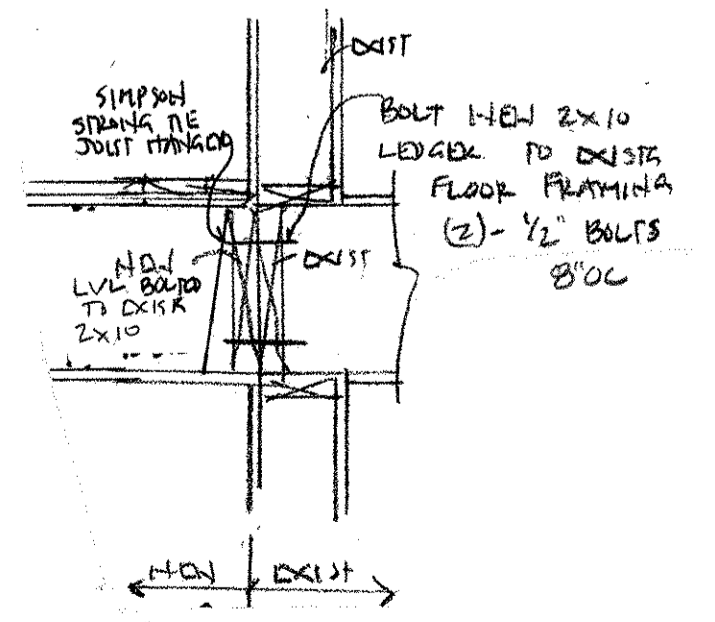 EXIST
SIMPSON
STRONG TIE
JOIST HANGER
BOLT NEW 2X10
LEDGER TO EXISTG
FLOOR FRAMING
(2)- 1/2" BOLTS
8"OC
NEW
LVL BOLTED
TO EXIST
2X10
EXIST
NEW
EXIST